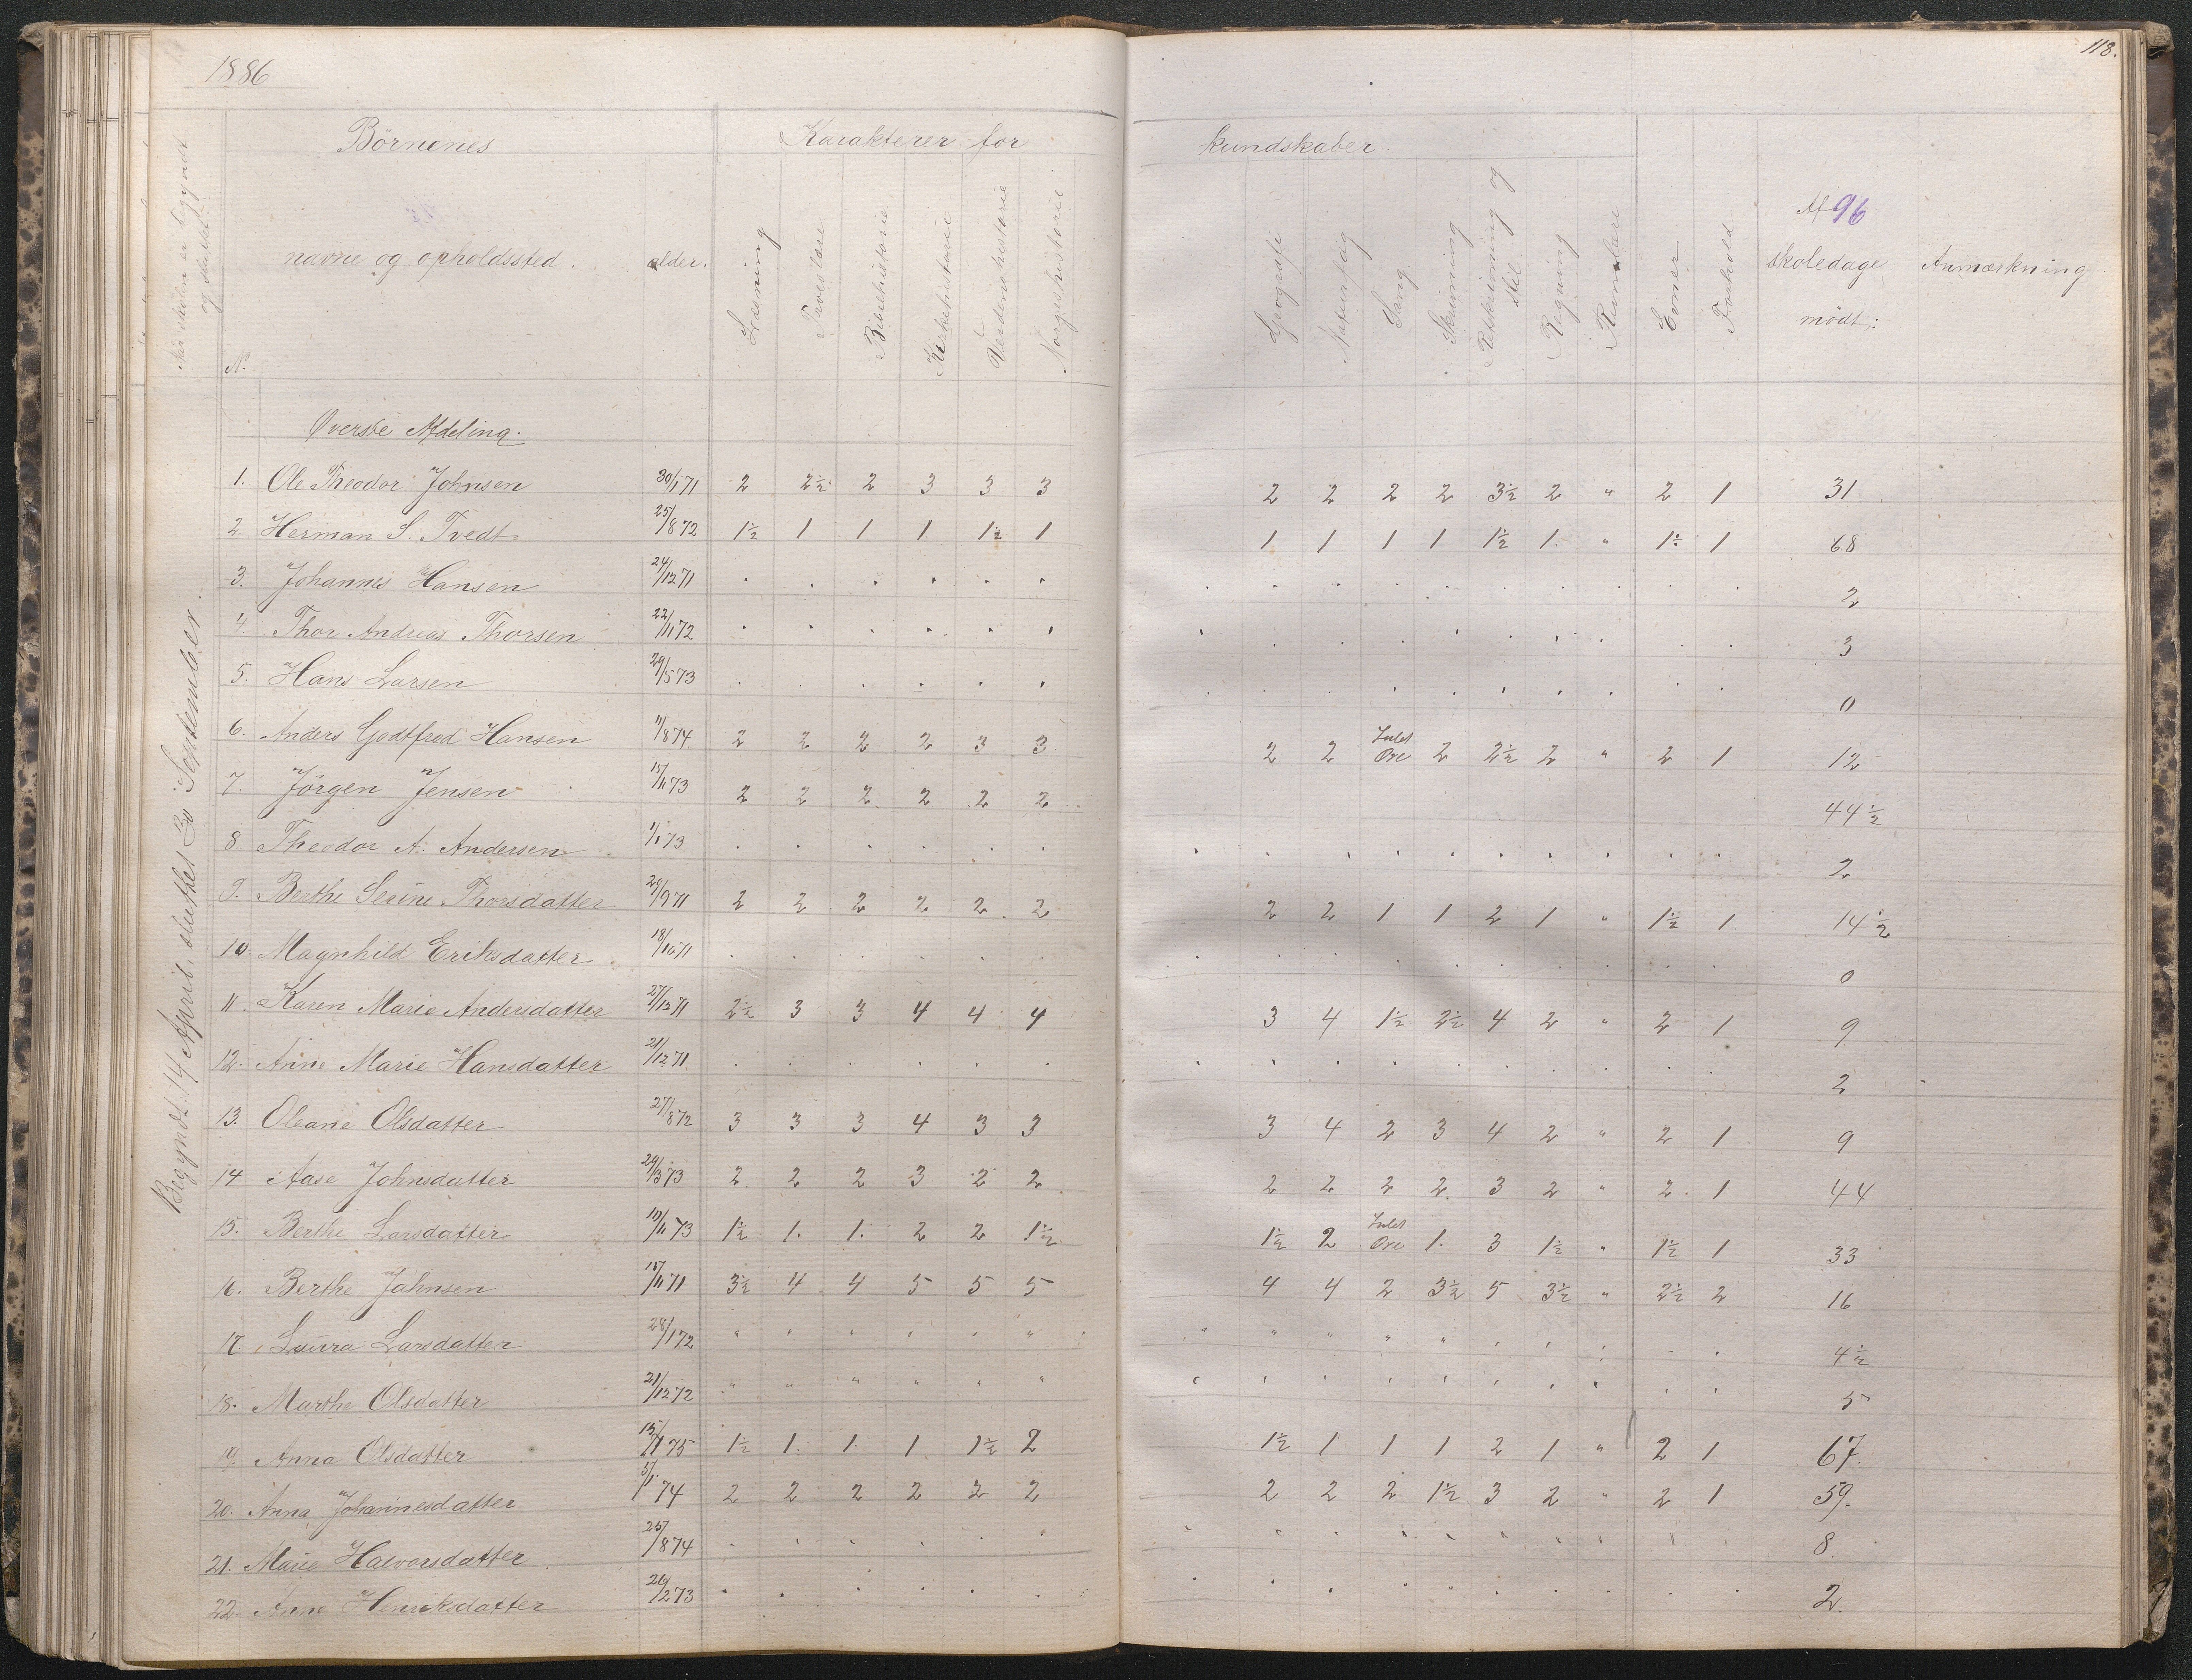 1886
118.
Børnenes
Karakterer for
kundskaber.
Når skolen er begyndt og sluttet
No
navne og opholdssted.
alder.
Læsning
Troeslære
Bibelhistorie
Kirkehistorie
Verdenshistorie
Norgeshistorie
Geografi
Naturfag
Sang
Skrivning
Retskrivning og stil
Regning
Rumlære
Evner
Forhold
Af 96 skoledage mødt:
Anmærkning
Begyndt 14 April, sluttet 30 September.
Øverste Afdeling.
1. Ole Theodor Johnsen 30/1 71 2 2½ 2 3 3 3 2 2 2 2 3½ 2 " 2 1 31
2. Herman S. Tvedt 25/8 72 1½ 1 1 1 1½ 1 1 1 1 1 1½ 1. " 1½ 1 68
3. Johannes Hansen 24/12 71 . . . . . . 2
4. Thor Andreas Thorsen 22/11 72 . . . . . . 3
5. Hans Larsen 29/5 73 . . . . . . 0
6. Anders Godtfred Hansen 11/8 74 2 2 2 2 3 3 2 2 Intet Øre 2 2½ 2 " 2 1 12
7. Jörgen Jensen 15/11 73 2 2 2 2 2 2 44½
8. Theodor A. Andersen 1/1 73 . . . . . . 2
9. Berthe Serine Thorsdatter 28/9 71 2 2 2 2 2 2 2 2 1 1 2 1 " 1½ 1 14½
10. Magnhild Eriksdatter 18/10 71 . . . . . . 0
11. Karen Marie Andersdatter 27/12 71 2½ 3 3 4 4 4 3 4 1½ 2½ 4 2 " 2 1 9
12. Anne Marie Hansdatter 21/12 71 . . . . . . 2
13. Oleane Olsdatter 27/8 72 3 3 3 4 3 3 3 4 2 3 4 2 " 2 1 9
14 Aase Johnsdatter 29/3 73 2 2 2 3 2 2 2 2 2 2 3 2 " 2 1 44
15. Berthe Larsdatter 19/11 73 1½ 1. 1. 2 2 1½ 1½ 2 Intet Øre 1. 3 1½ " 1½ 1 33
16. Berthe Johnsen 15/11 71 3½ 4 4 5 5 5 4 4 2 3½ 5 3½ " 2½ 2 16
17. Laura Larsdatter 28/1 72 " " " " " " 4½
18. Marthe Olsdatter 21/12 72 " " " " " " 5
19. Anna Olsdatter 15/11 75 1½ 1. 1. 1 1½ 2 1½ 1 1 1 2 1 " 2 1 67.
20. Anna Johannesdatter 5/1 74 2 2 2 2 2 2 2 2 2 1½ 3 2 " 2 1 59.
21. Marie Halvorsdatter 25/8 74 . . . . . " 8.
22. Anne Henriksdatter 26/2 73 . . . . . . 2.